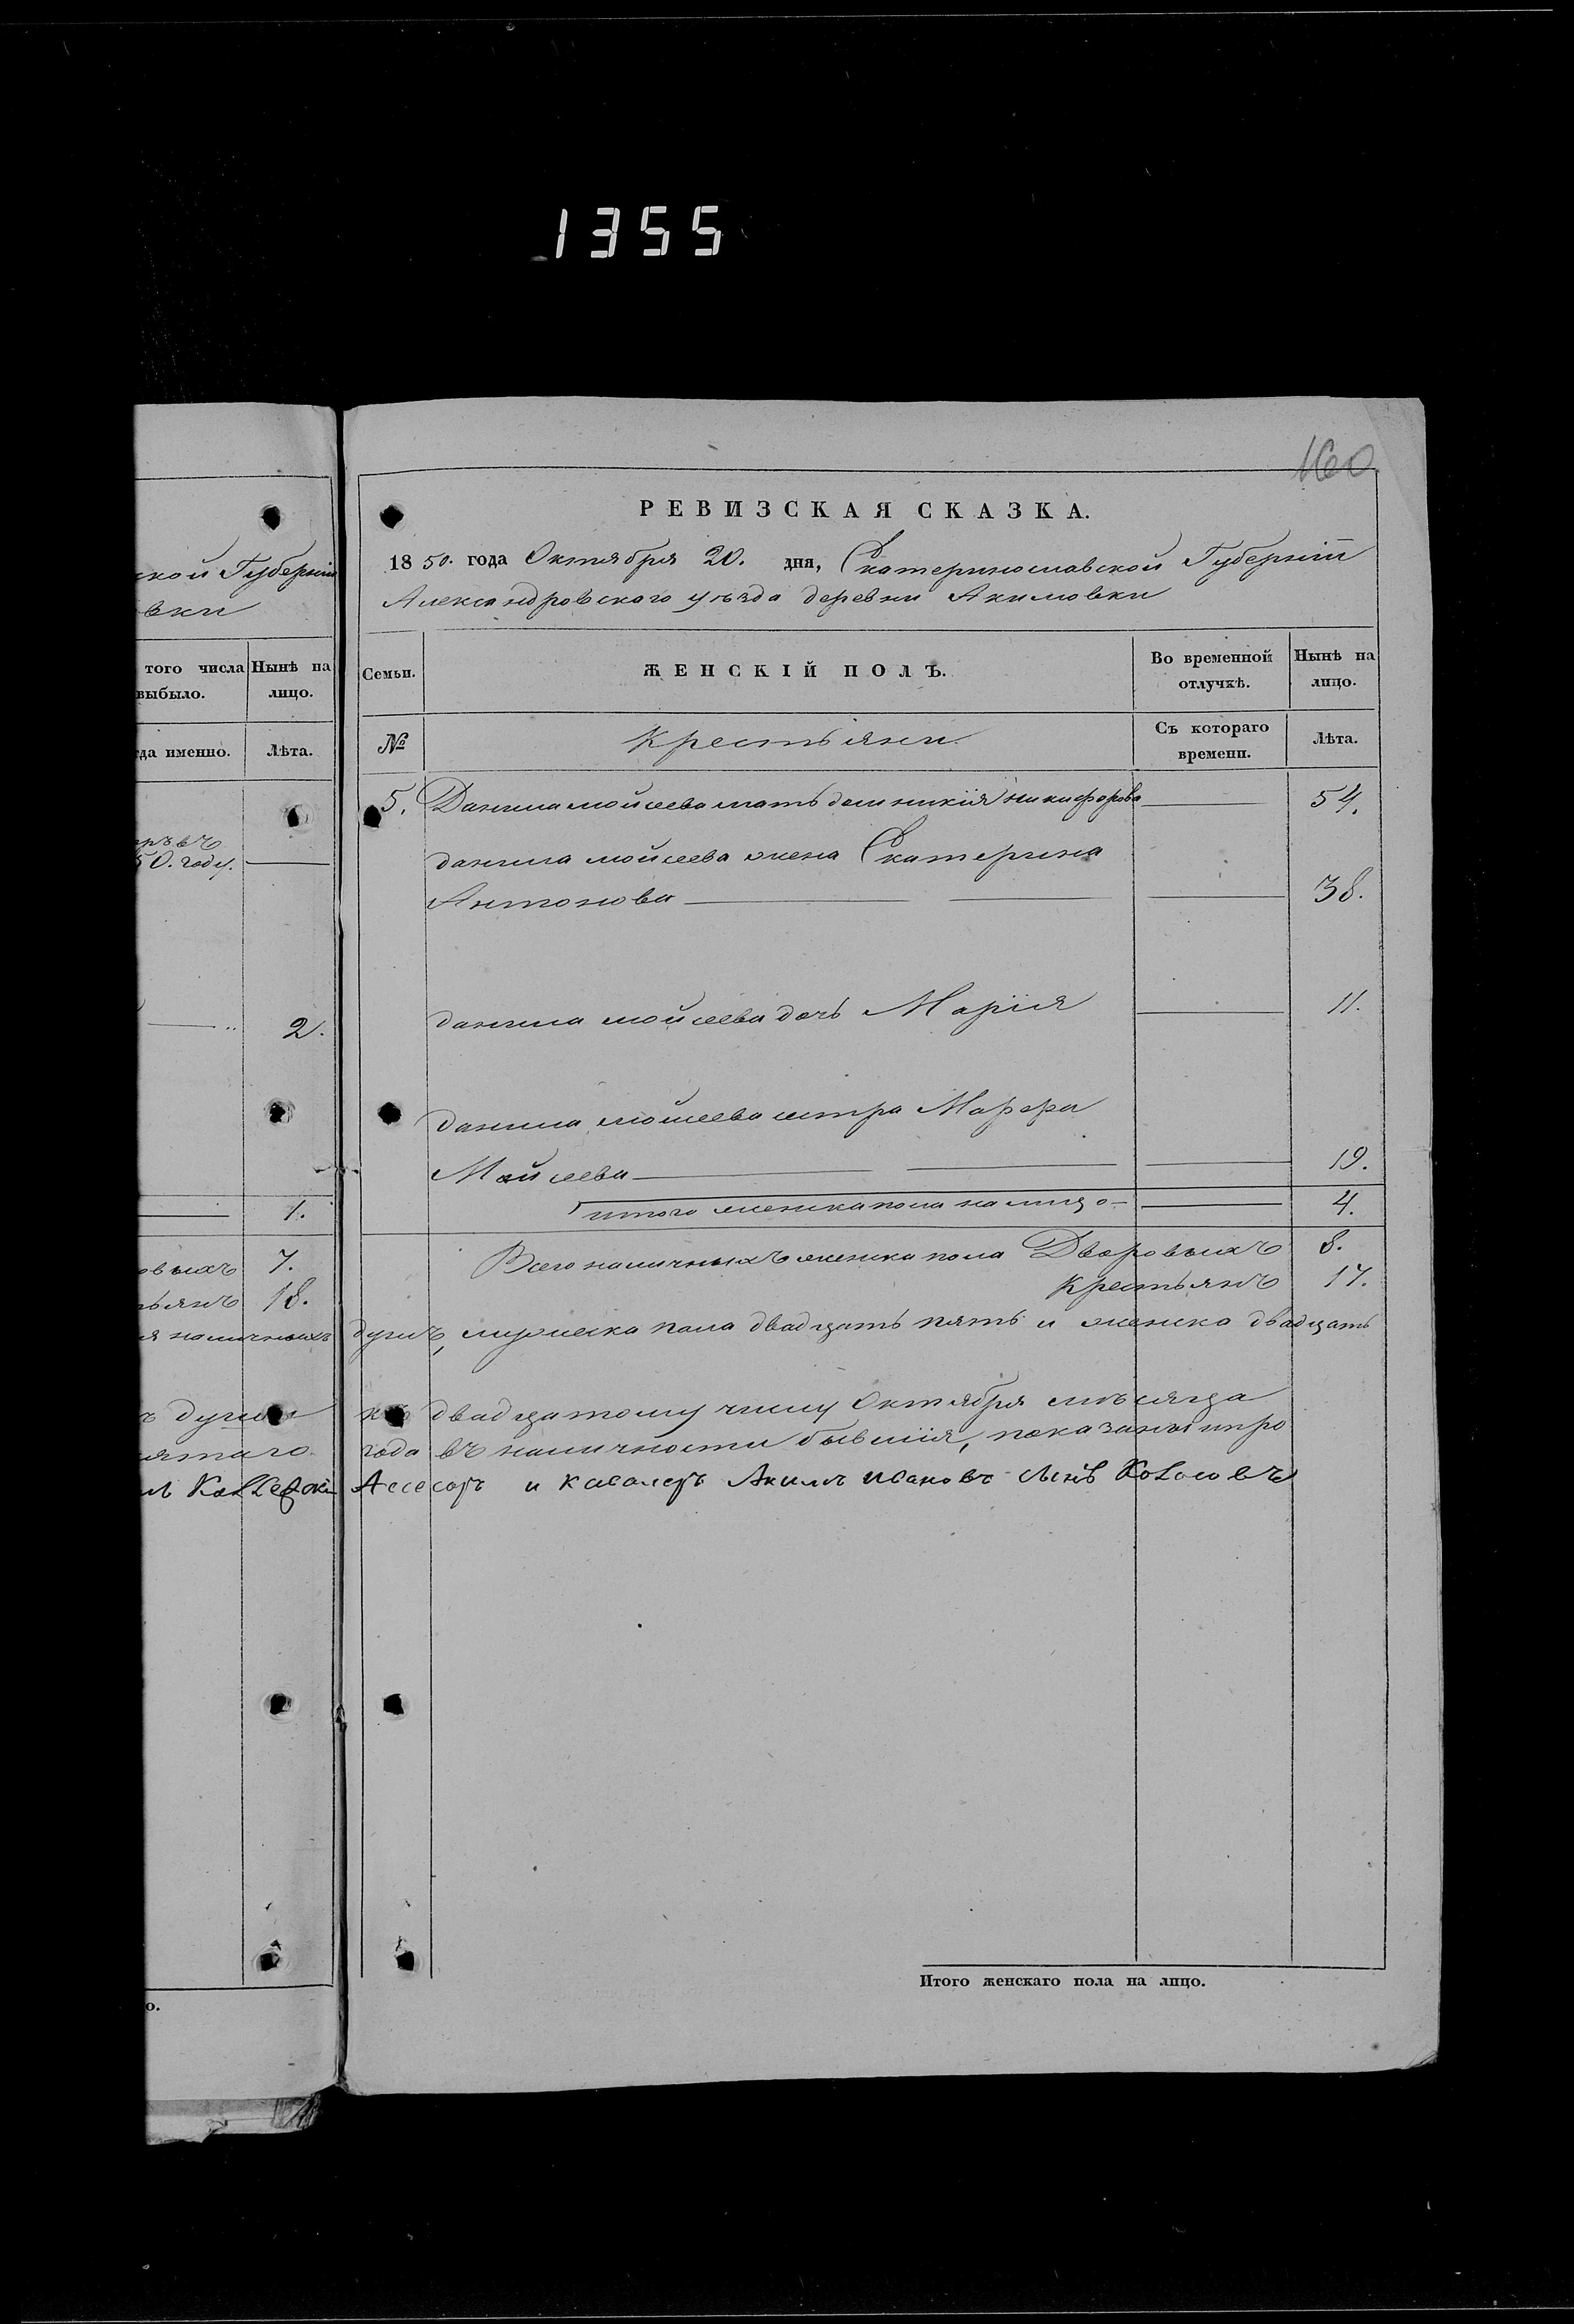 1355
160
РЕВИЗСКАЯ СКАЗКА.
1850. года Октября 20. дня, Екатеринославской Губерніи
Александровскаго уѣзда деревни Акимовки
Семьи.
ЖЕНСКІЙ ПОЛЪ.
Во временной отлучкѣ.
Нынѣ на лицо.
№
Крестьяни
Съ котораго времени.
Лѣта.
5. Данила мойсеева мать домникія никифорова 54.
данила мойсеева жена Екатерина
Антонова 38.
данила мойсеева дочь Марія 11.
данила мойсеева сестра Марфа
Мойсеева 19.
итого женска пола на лицо 4.
Всего наличныхъ женска пола Дворовыхъ 8.
Крестьянъ 17.
душъ, мужеска пола двадцать пять и женска двадцать
двадцатому числу Октября мѣсяца
года въ наличности бывшія, показаны и про
Ассесоръ и кавалеръ Акимъ Ивановъ сынъ Колосовъ
Итого женскаго пола на лицо.
ской Губерніи
вки
того числа выбыло.
Нынѣ на лицо.
да именно.
Лѣта.
50. году.
2.
1.
овыхъ 7.
ьянъ 18.
я наличныхъ
ъ душъ
ятаго
о.